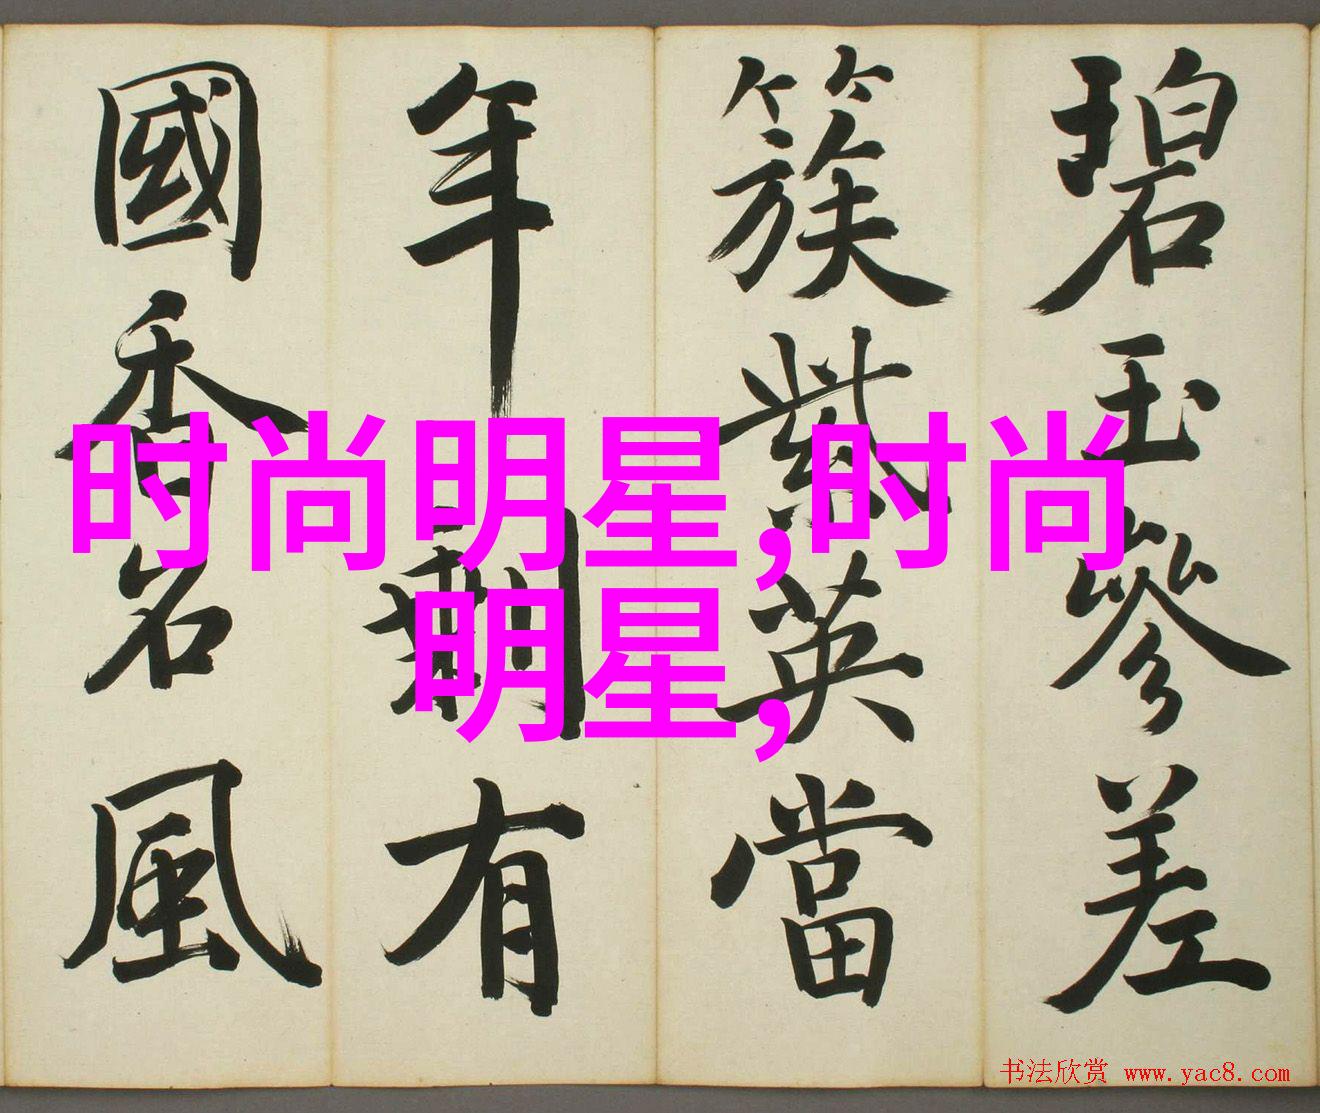 碧玉參差
簇紫英當
年剩有
國香名風
时尚明星,时尚
明星,
书法欣赏 www.yac8.com